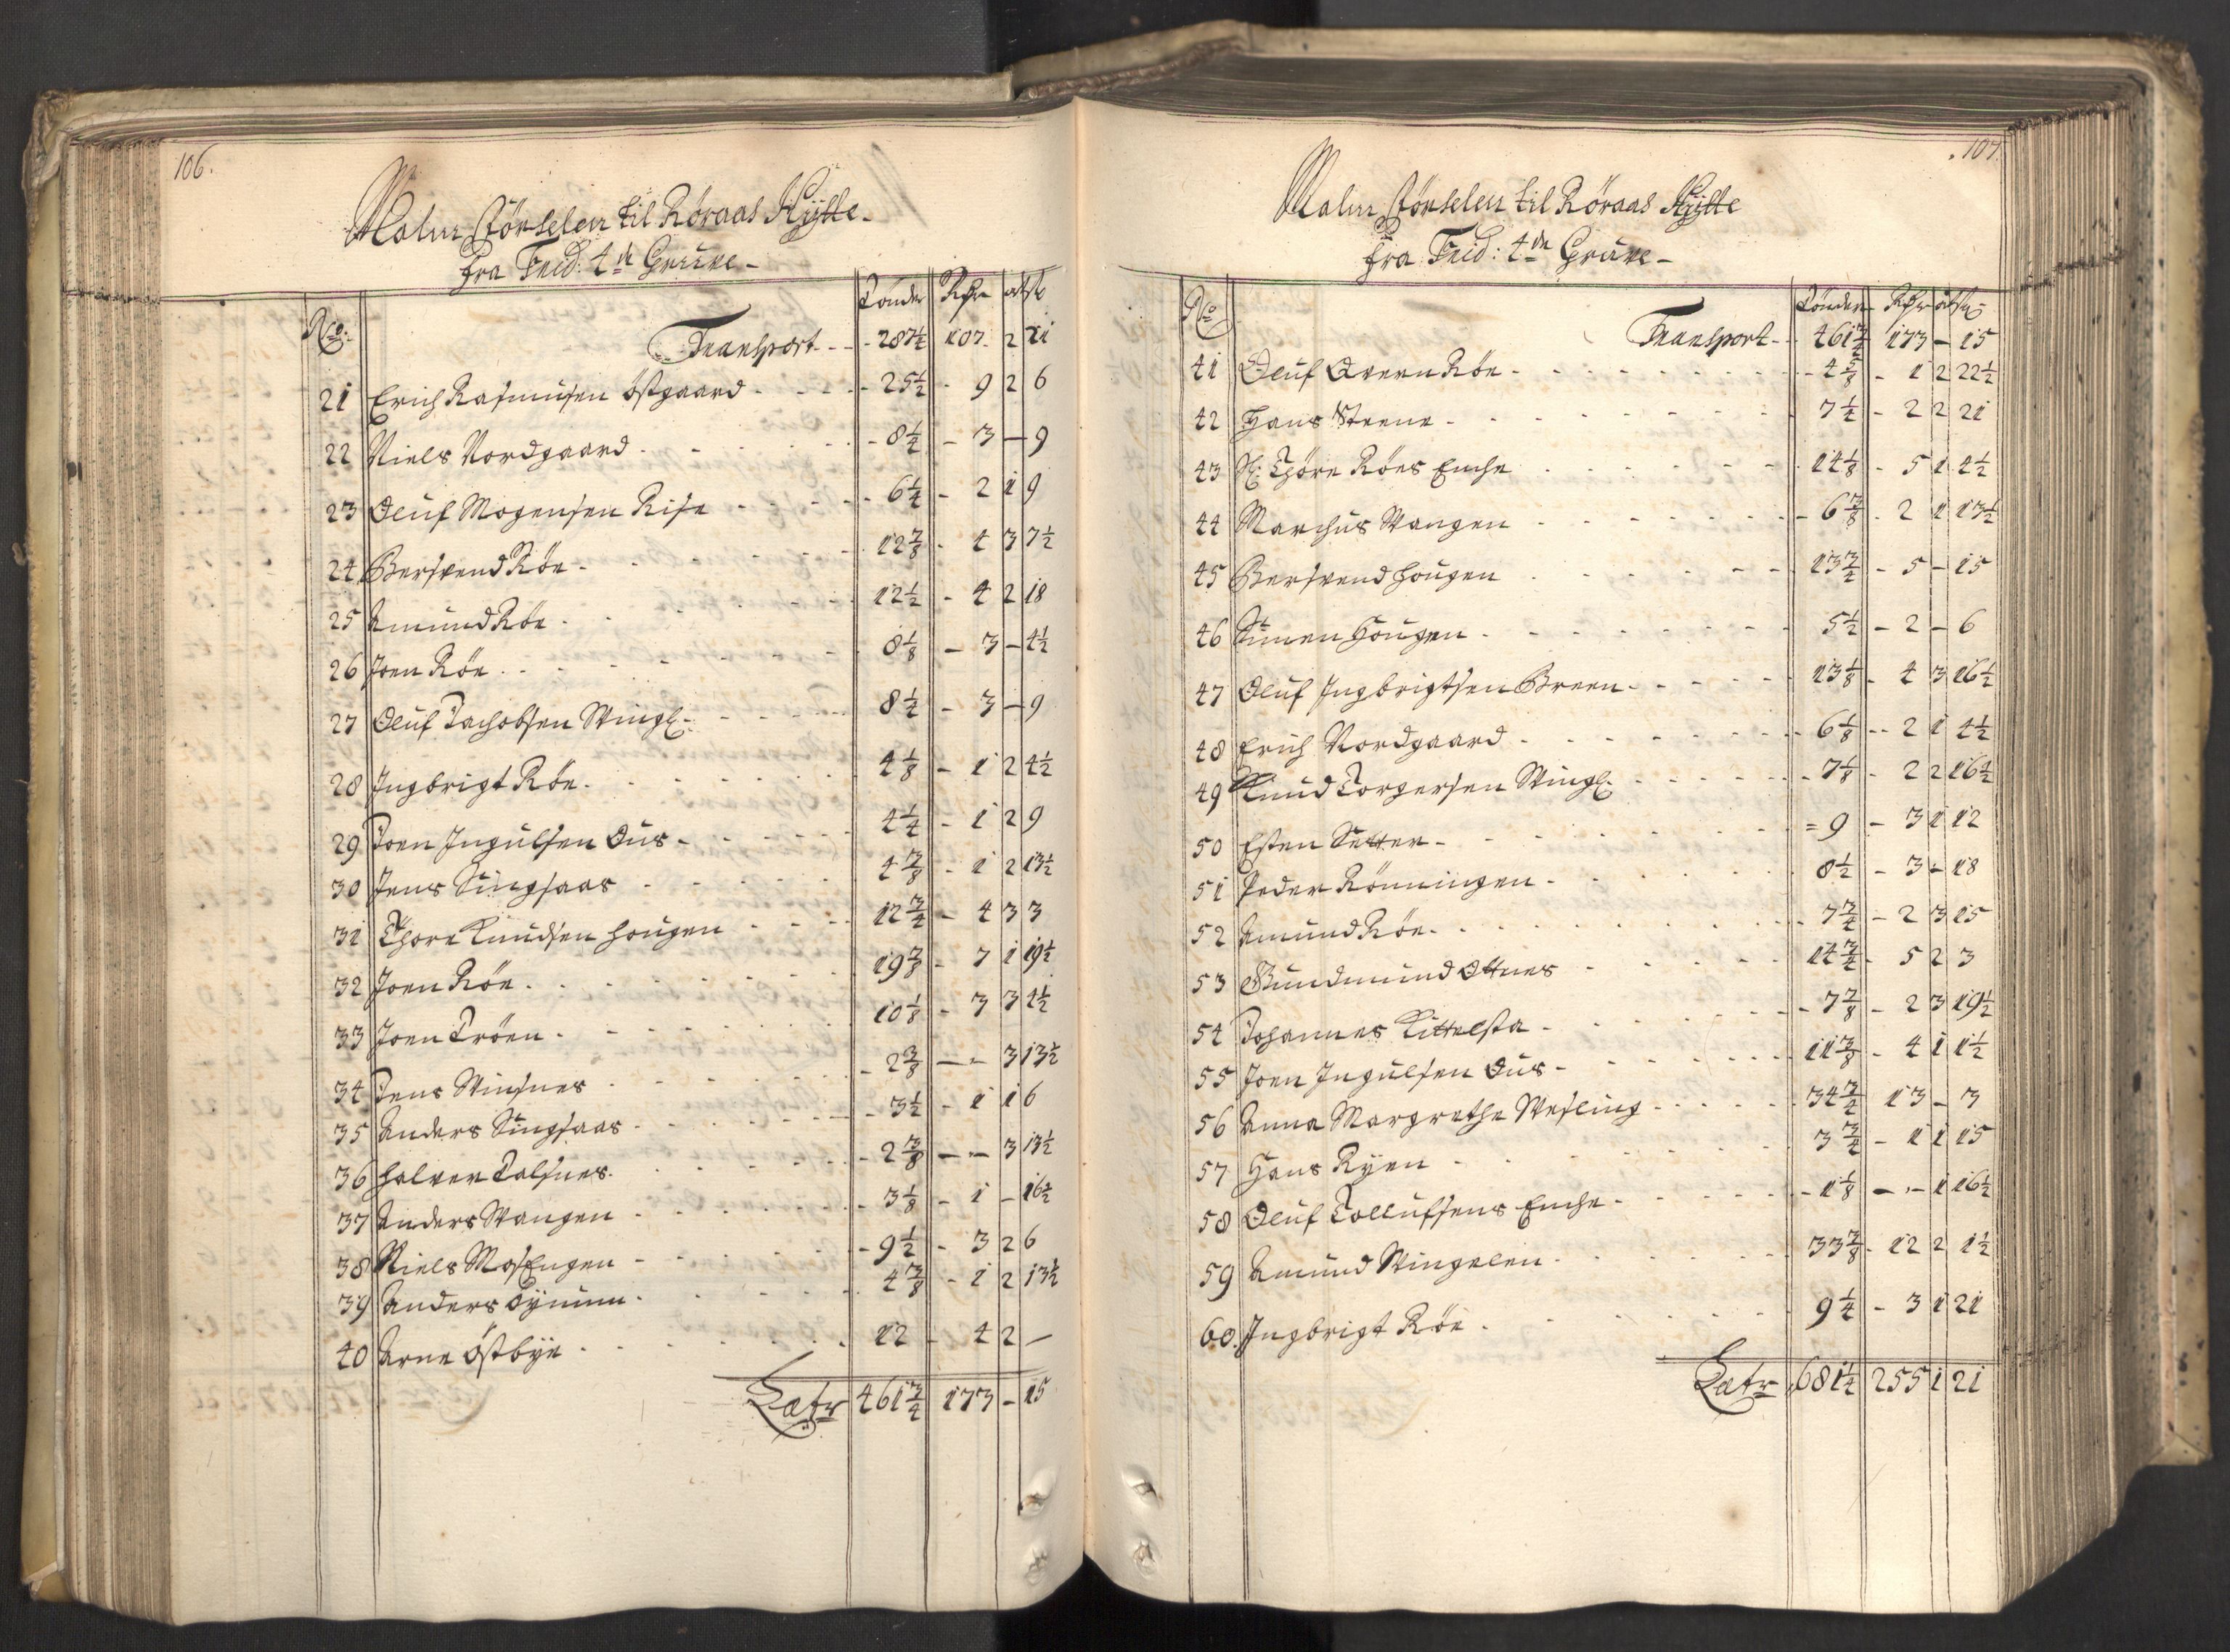 106.
Malm Körselen til Röraas Hytte
fra Frid: 4de Gruve
No. Tönder Rdr ort s
Transport - - 287 1/4 107. 2 21
21 Erich Rasmusen Östgaard - - - 25 1/2 - 9 2 6
22 Niels Nordgaard - - - 8 1/4 - 3 - 9
23 Oluf Mogensen Rise - - - 6 1/4 - 2 1 9
24 Bersvend Röe - - - 12 7/8 - 4 3 7 1/2
25 Amund Röe - - - 12 1/2 - 4 2 18
26 Joen Röe - - - 8 1/8 - 3 - 4 1/2
27 Oluf Jachobsen Vingl: - - - 8 1/4 - 3 - 9
28 Ingbrigt Röe - - - 4 1/8 - 1 2 4 1/2
29 Joen Ingulfsen Aus - - - 4 1/4 - 1 2 9
30 Jens Singsaas - - - 4 3/8 - 1 2 13 1/2
31 Thore Knudsen Hougen - - - 12 3/4 - 4 3 3
32 Joen Röe - - - 19 7/8 - 7 1 19 1/2
33 Joen Tröen - - - 10 1/8 - 3 3 4 1/2
34 Jens Vinsnes - - - 2 3/8 - - 3 13 1/2
35 Anders Singsaas - - - 3 1/2 - 1 1 6
36 Halver Talsnes - - - 2 3/8 - - 3 13 1/2
37 Anders Vangen - - - 3 1/8 - 1 - 16 1/2
38 Niels MosEngen - - - 9 1/2 - 3 2 6
39 Anders - - - 4 3/8 - 1 2 13 1/2
40 Arne Östbye - - - 12 - 4 2 -
Latr 461 3/4 173 - 15
107.
Malm Körselen til Röraas Hytte
fra Frid: 4de Gruve
No Tönder Rdr ort s
Transport - 461 3/4 173 - 15
41 Oluf Qvern Röe - - - 4 5/8 - 1 2 22 1/2
42 Hans Steene - - - 7 1/4 - 2 2 21
43 Sl: Thöre Röes Enche - - - 14 1/8 - 5 1 4 1/2
44 Marchus Vangen - - - 6 3/8 - 2 1 13 1/2
45 Bersvend Hougen - - - 13 3/4 - 5 - 15
46 Simen Hougen - - - 5 1/2 - 2 - 6
47 Oluf Ingbrigtsen Breen - - - 13 1/8 - 4 3 16 1/2
48 Erich Nordgaard - - - 6 1/8 - 2 1 4 1/2
49 Knud Torgersen Vingl: - - - 7 1/8 - 2 2 16 1/2
50 Esten Setter - - - 9 - 3 1 12
51 Peder Rönningen - - - 8 1/2 - 3 - 18
52 Amund Röe - - - 7 3/4 - 2 3 15
53 Gundmund Ottnes - - - 14 3/4 - 5 2 3
54 Johannes Kittelsta - - - 7 7/8 - 2 3 19 1/2
55 Joen Ingulfsen Aus - - - 11 3/8 - 4 1 1 1/2
56 Anna Margrethe Wesling - - - 34 3/4 13 - 3
57 Hans Ryen - - - 3 3/4 - 1 1 15
58 Oluf Tollufsens Enche - - - 1 1/8 - - 1 16 1/2
59 Amund Vingelen - - - 33 3/8 - 12 2 1 1/2
60. Ingbrigt Röe - - - 9 1/4 - 3 1 21
Latr 681 1/4 255 1 21